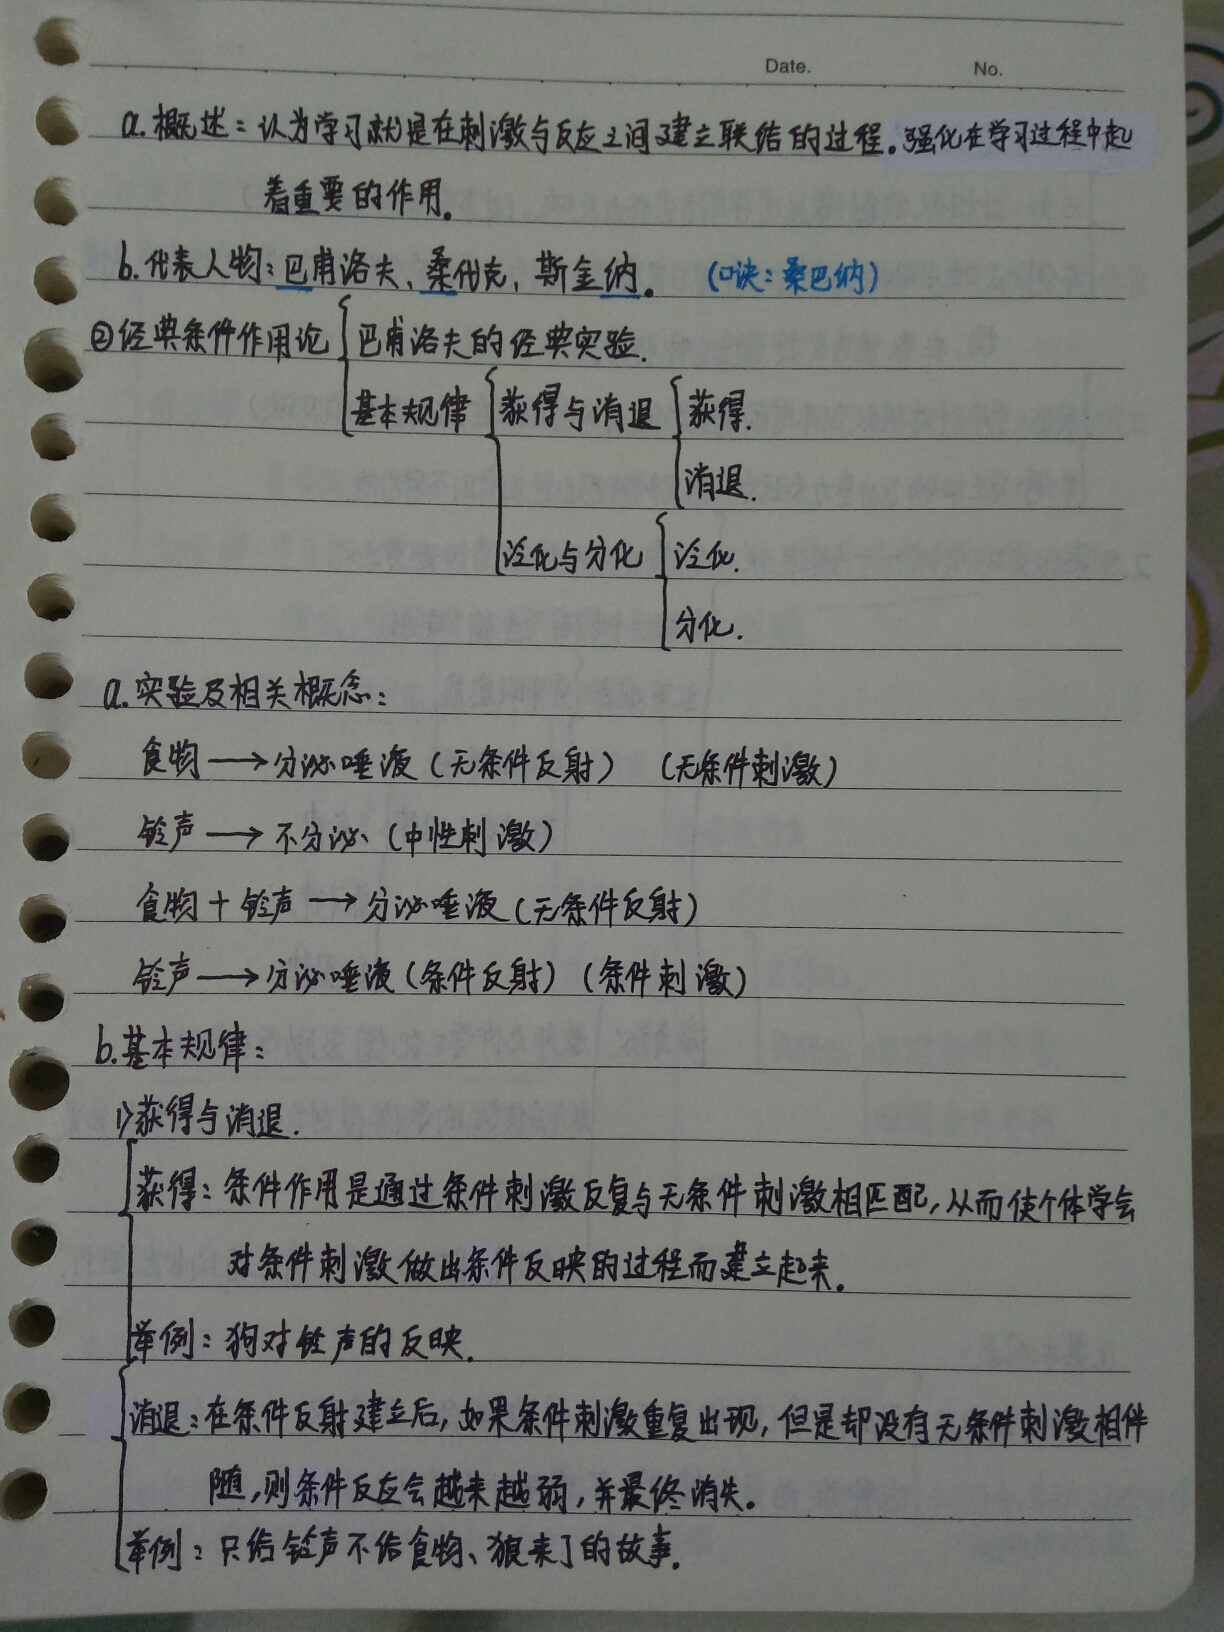 Date. No.
a. 概述：认为学习就是在刺激与反应之间建立联结的过程。强化在学习过程中起
着重要的作用。
b. 代表人物：巴甫洛夫、桑代克、斯金纳。（口诀：桑巴纳）
②经典条件作用论 巴甫洛夫的经典实验.
基本规律 获得与消退 获得.
消退.
泛化与分化 泛化.
分化.
a. 实验及相关概念：
食物→分泌唾液（无条件反射）（无条件刺激）
铃声→不分泌（中性刺激）
食物+铃声→分泌唾液（无条件反射）
铃声→分泌唾液（条件反射）（条件刺激）
b. 基本规律：
1）获得与消退.
获得：条件作用是通过条件刺激反复与无条件刺激相匹配，从而使个体学会
对条件刺激做出条件反映的过程而建立起来。
举例：狗对铃声的反映.
消退：在条件反射建立后，如果条件刺激重复出现，但是却没有无条件刺激相伴
随，则条件反应会越来越弱，并最终消失。
举例：只给铃声不给食物、狼来了的故事.